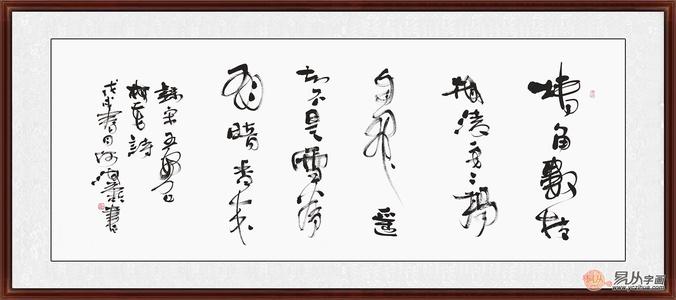 墙角數枝
梅凌寒独
自开遥
知不是雪为
有暗香来
録宋王安石
梅花詩
戊戌春日
易从字画
www.yczihua.com